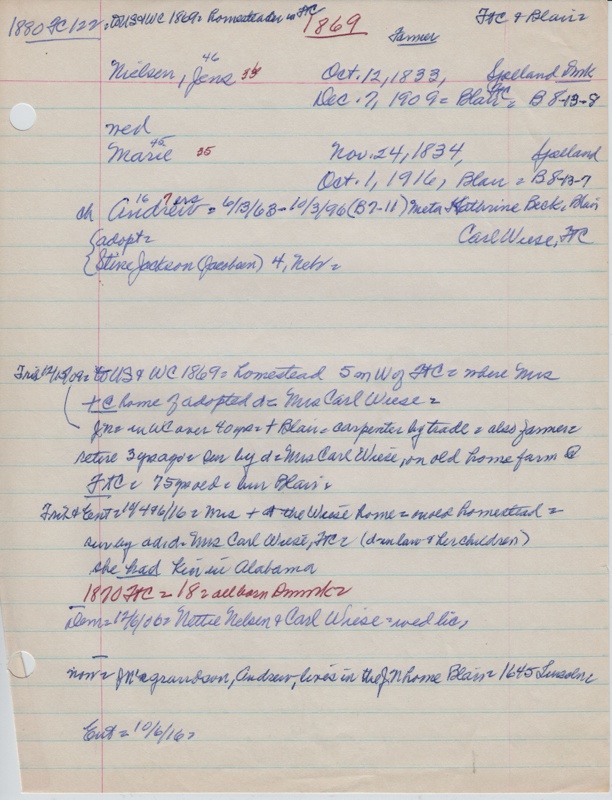 1880 FC 122 = to US & WC 1869 = Homesteader in FtC 1869 FtC & Blair =
Farmer
46
Nielsen, Jens 35 Oct. 12, 1833, Sjelland Dmk
Dec. 7, 1909 = Blair = B 8-13-8
wed
45
Marie 35 Nov. 24, 1834, Sjelland
Oct. 1, 1916, Blair = B 8-13-7
16 7 yrs
ch Andrew = 6/13/63 - 10/3/96 (B7-11) Meta Kathrine Beck, Blair
{adopt = Carl Wiese, FtC
{Stine Jackson (Jacobsen) 4, Nebr =
to US & WC 1869 = homestead 5 m W of FtC = where Mrs
+ @ home of adopted d = Mrs Carl Wiese =
JN = in WC over 40 yrs = + Blair = carpenter by trade = also farmer =
retire 3 yrs ago = sur by d = Mrs Carl Wiese, on old home farm @
FtC = 75 yrs old = bur Blair =
Mrs + @ the Wiese home = on old homestead =
sur by ad. d = Mrs Carl Wiese, FtC = (d-in law & her children)
she had kin in Alabama
1870 FtC = 18 = all born Dnmrk =
Dem = 12/6/06 = Nettie Nelsen & Carl Wiese = wed lic,
now = JN's grandson, Andrew, lives in the JN home Blair = 1645 Lincoln =
Ent = 10/6/16 =